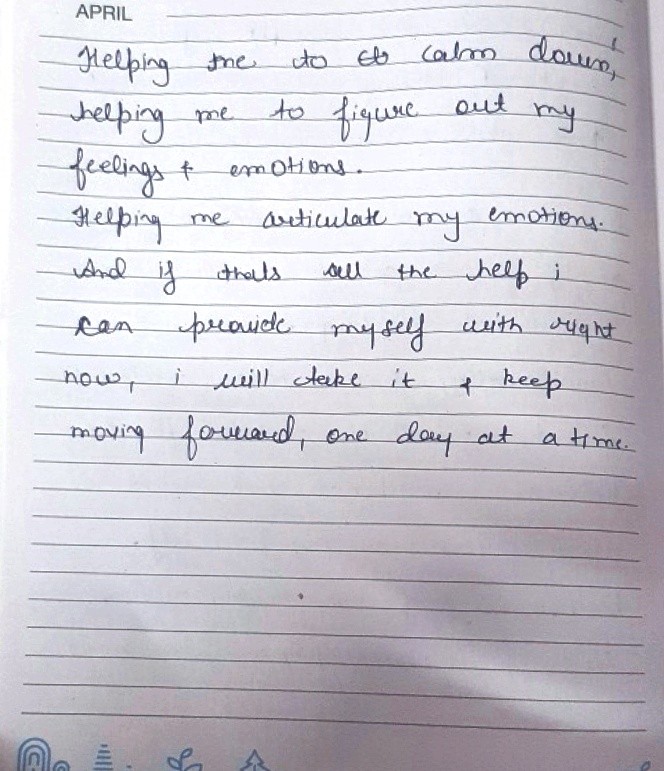 APRIL
Helping me to calm down,
helping me to figure out my
feelings & emotions.
Helping me articulate my emotions.
And if thats all the help i
can provide myself with right
now, i will take it & keep
moving forward, one day at a time.